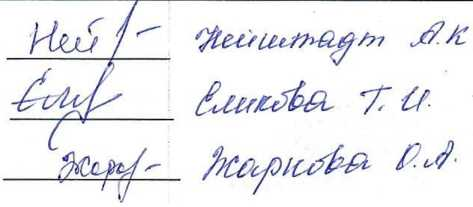 Ней Нейштадт А.К
Ели Еликова Т.И.
Жар Жаркова О.А.